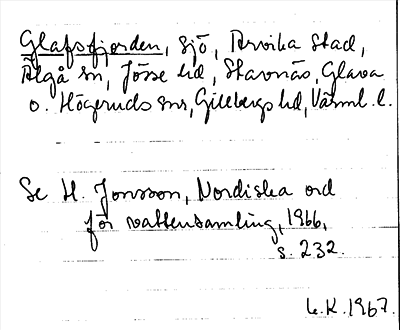 Glafsfjorden, sjö, Arvika stad,
Älgå sn, Jösse hd, Stavnäs, Glava
o. Högeruds snr, Gillbergs hd, Värml. l.
Se H. Jonsson, Nordiska ord
för vattensamling, 1966,
s. 232.
L.K. 1967.